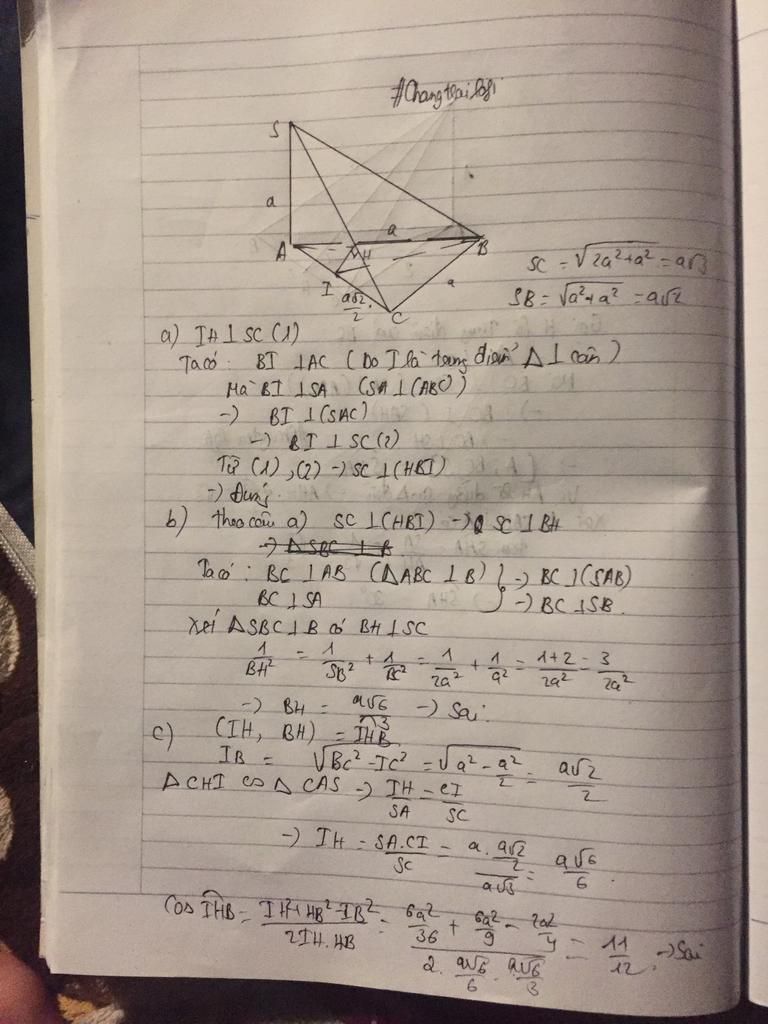 #Changtraisofi
S
a
A
a
H
B
I
a√2/2
C
a
SC = √(2a²+a²) = a√3
SB = √(a²+a²) = a√2
a) IH ⊥ SC (1)
Ta có : BI ⊥ AC (Do I là trung điểm Δ ⊥ cân)
Mà BI ⊥ SA (SA ⊥ (ABC))
-> BI ⊥ (SAC)
-> BI ⊥ SC (2)
Từ (1), (2) -> SC ⊥ (HBI)
-> Đúng.
b) theo câu a) SC ⊥ (HBI) -> SC ⊥ BH
-> ΔSBC ⊥ B
Ta có : BC ⊥ AB (ΔABC ⊥ B) } -> BC ⊥ (SAB)
BC ⊥ SA } -> BC ⊥ SB.
Xét ΔSBC ⊥ B có BH ⊥ SC
1/BH² = 1/SB² + 1/BC² = 1/2a² + 1/a² = (1+2)/2a² = 3/2a²
-> BH = a√6/3 -> Sai.
c) (IH, BH) = IHB
IB = √(BC² - IC²) = √(a² - a²/2) = a√2/2
ΔCHI ∽ ΔCAS -> IH/SA = CI/SC
-> IH = SA.CI/SC = (a . a√2/2)/(a√3) = a√6/6.
Cos IHB = (IH² + HB² - IB²)/(2IH.HB) = (6a²/36 + 6a²/9 - 2a²/4)/(2 . a√6/6 . a√6/3) = 11/12. -> Sai